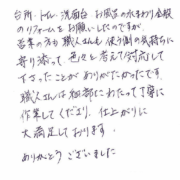 台所・トイレ・洗面台・お風呂の水まわり全般
のリフォームをお願いしたのですが、
営業の方も職人さんも使う側の気持ちに
寄り添って色々と考えて対応して
下さったことがありがたかったです。
職人さんは細部にわたって丁寧に
作業してくださり、仕上がりに
大満足しております。
ありがとうございました